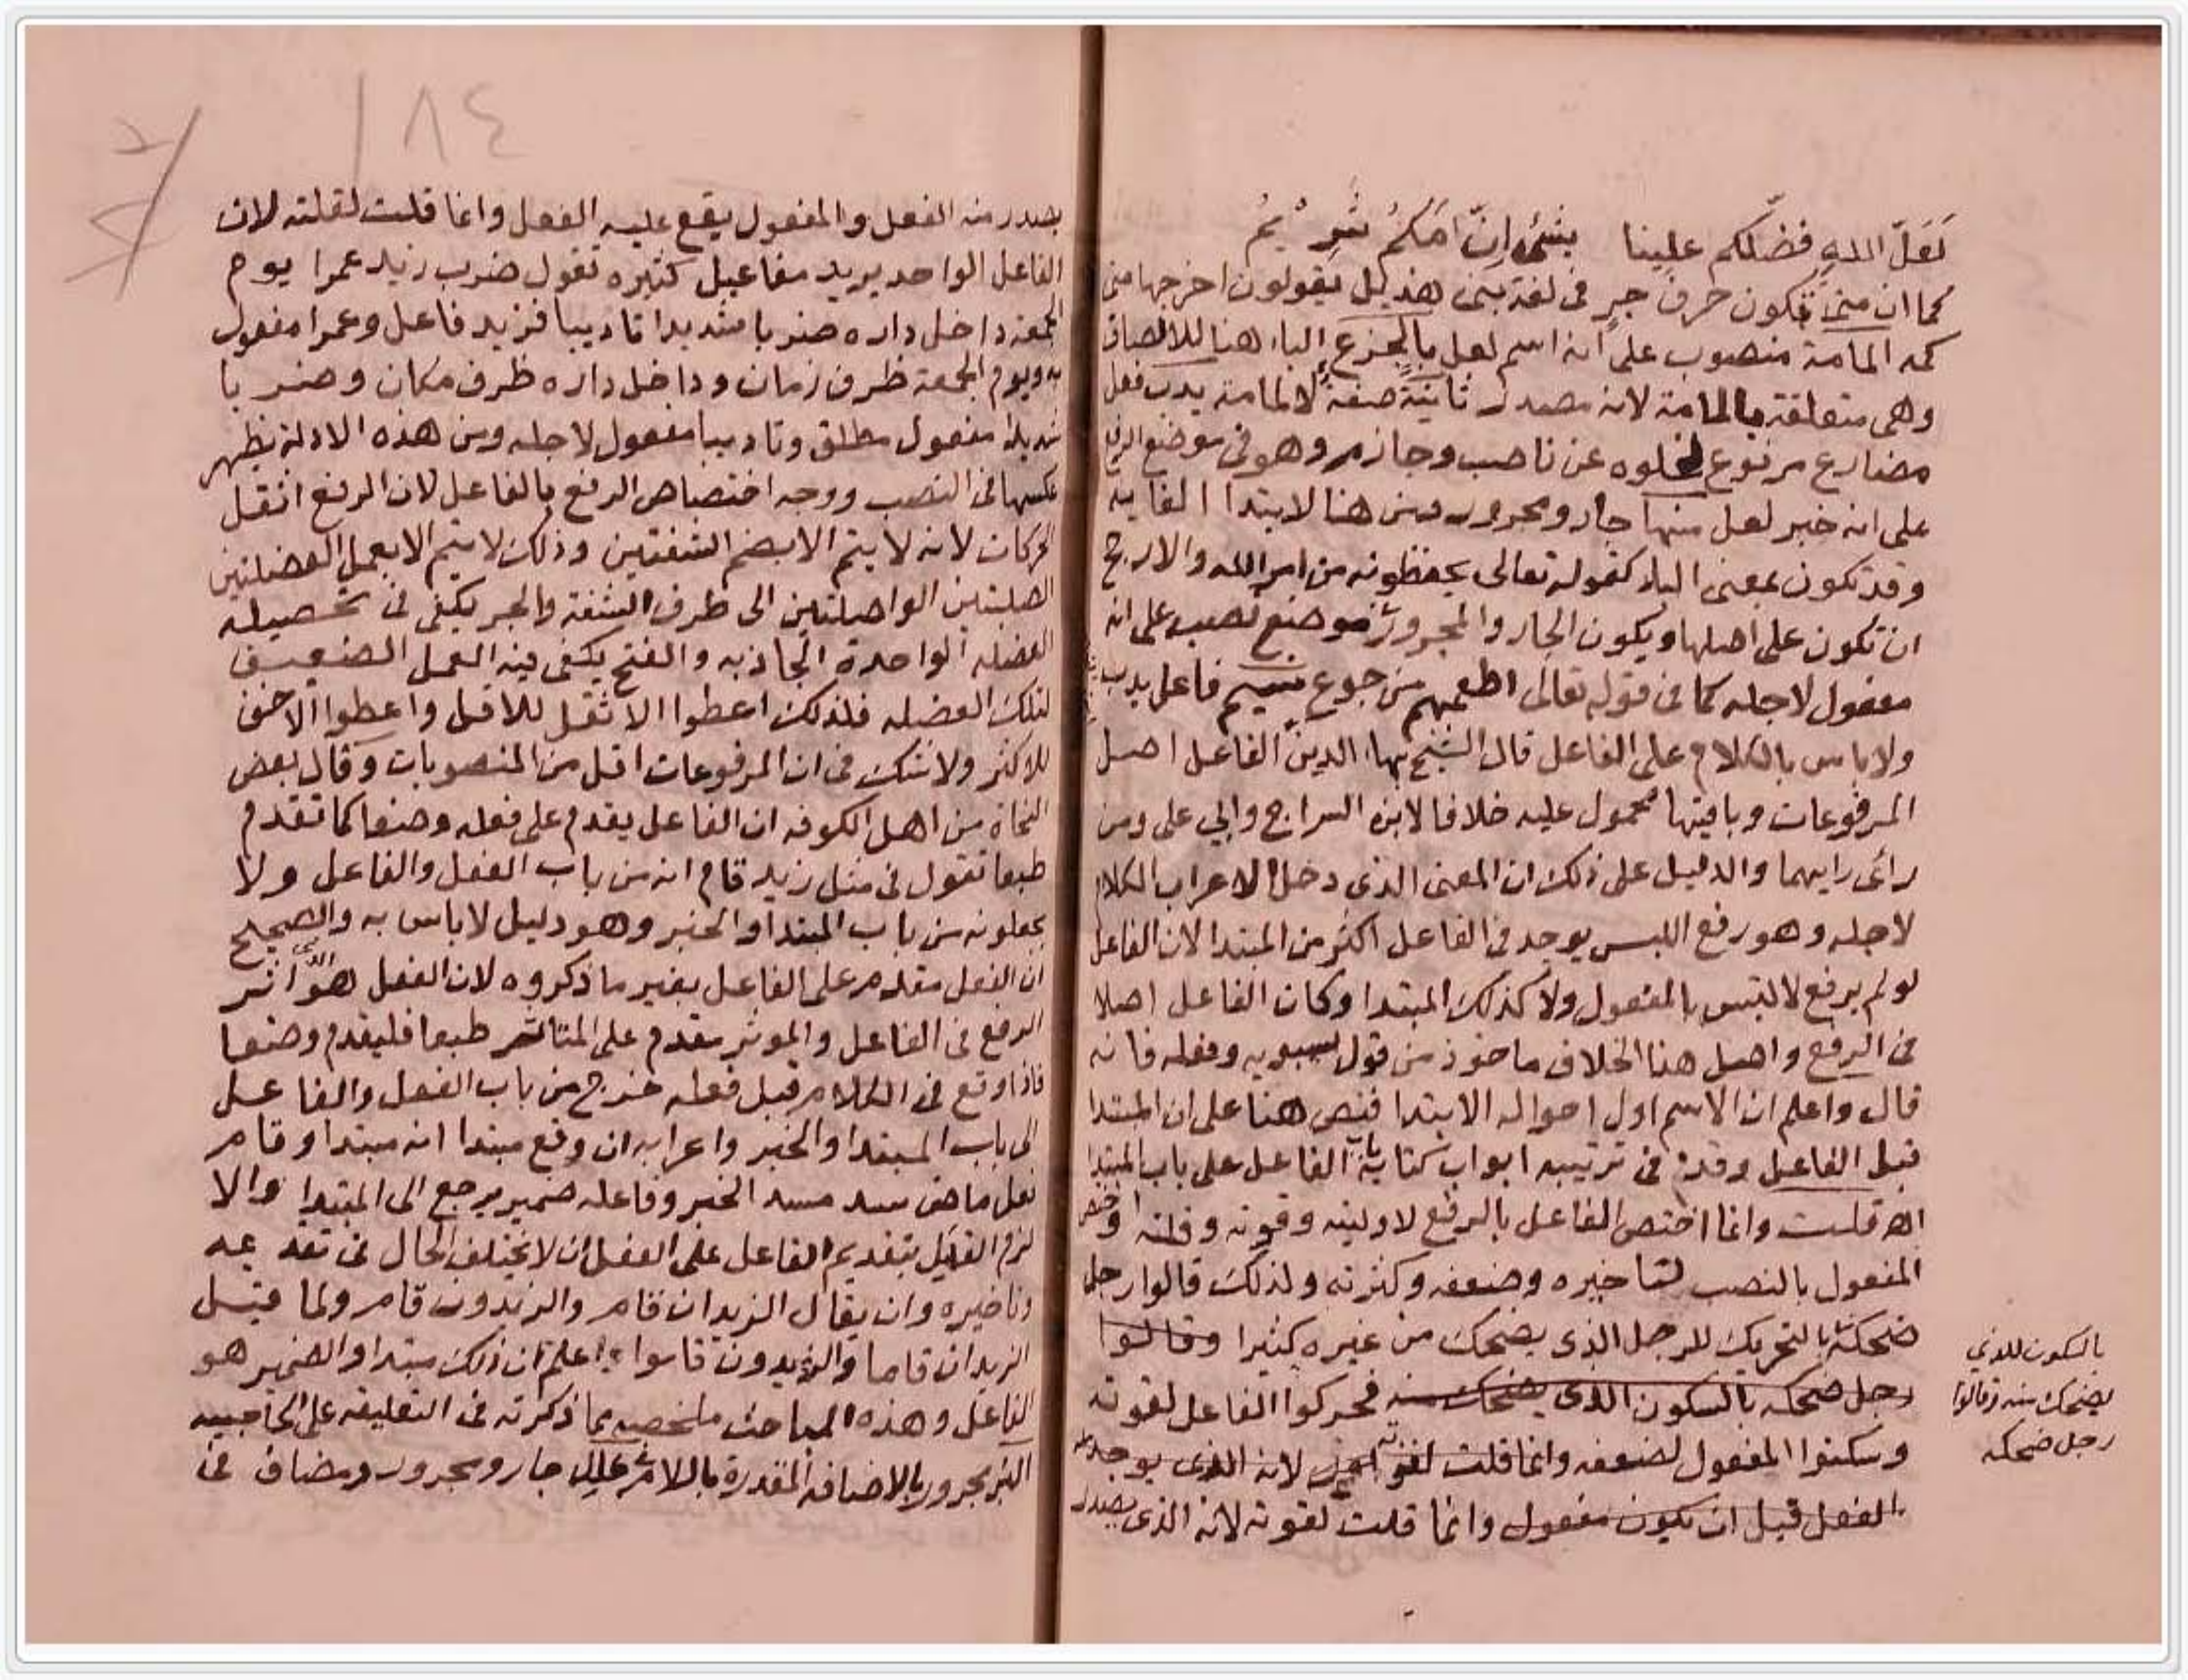 لَعَلَّ اللهِ فضّلكم علينا بشئٍ اِنّ اُمّكُمُ شَرِيْمُ
كما ان متى تكون حرف جر في لغة بني هذيل يقولون اخرجها متى
كمه المامة منصوب على انه اسم لعل بالجزع الباء هنا للالصاق
وهى متعلقة بالمامة لانه مصدر ثانيَةً صفةً لالمامة يدب فعل
مضارع مرفوع لخلوه عن ناصب وجازم وهو في موضع الرفع
على انه خبر لعل منها جار ومجرور ومن هنا لابتدا الغايه
وقد تكون بمعنى الباء كقوله تعالى يحفظونه من امر الله والارجح
ان تكون على اصلها ويكون الجار والمجرور في موضع نصب على انه
مفعول لاجله كما في قوله تعالى اطعمهم من جوع نسيم فاعل يدب
ولا باس بالكلام على الفاعل قال الشيخ بهاء الدين الفاعل اصل
المرفوعات وباقيها محمول عليه خلافا لابن السراج وابي على ومن
راى رايهما والدليل على ذلك ان المعنى الذى دخل الاعراب الكلام
لاجله وهو رفع اللبس يوجد في الفاعل اكثر من المبتدا لان الفاعل
لو لم يرفع لالتبس بالمفعول ولا كذلك المبتدا وكان الفاعل اصلا
في الرفع واصل هذا الخلاف ماخوذ من قول سيبويه وفعله فانه
قال واعلم ان الاسم اول احواله الابتدا فنص هنا على ان المبتدا
قبل الفاعل وقدم في ترتيبه ابواب كتابه باب الفاعل على باب المبتدا
اه قلت وانما اختص الفاعل بالرفع لاوليته وقوته وقلته واختص
المفعول بالنصب لتاخيره وضعفه وكثرته ولذلك قالوا رجل
ضحكة بالتحريك للرجل الذى يضحك من غيره كثيرا وقالوا
رجل ضحكه بالسكون الذى يضحك منه فحركوا الفاعل لقوته
وسكنوا المفعول لضعفه وانما قلت لقوته لانه الذى يوجد
الفعل قبل ان يكون مفعول وانما قلت لقوته لانه الذى يصدر
بالسكون للذي
يضحك منه وقالوا
رجل ضحكه
١٨٤
يصدر منه الفعل والمفعول يقع عليه الفعل وانما قلت لقلته لان
الفاعل الواحد يريد مفاعيل كثيره تقول ضرب زيد عمرا يوم
الجمعة داخل داره ضربا شديدا تاديبا فزيد فاعل وعمرا مفعول
به ويوم الجمعة ظرف زمان وداخل داره ظرف مكان وضربا
شديدا مفعول مطلق وتاديبا مفعول لاجله ومن هذه الادلة يظهر
عكسها في النصب ووجه اختصاص الرفع بالفاعل لان الرفع اثقل
الحركات لانه لا يتم الا بضم الشفتين وذلك لا يتم الا بعمل العضلتين
الصلبتين الواصلتين الى طرف الشفة والجر يكفى في تحصيله
العضله الواحدة الجاذبه والفتح يكفى فيه العمل الضعيف
لتلك العضله فلذلك اعطوا الاثقل للاقل واعطوا الاخف
للاكثر ولا شك في ان المرفوعات اقل من المنصوبات وقال بعض
النحاة من اهل الكوفه ان الفاعل يقدم على فعله وضعا كما تقدم
طبعا تقول في مثل زيد قام انه من باب الفعل والفاعل ولا
يجعلونه من باب المبتدا والخبر وهو دليل لا باس به والصحيح
ان الفعل مقدم على الفاعل بغير ما ذكروه لان الفعل هو الذى اثر
الرفع في الفاعل والموثر يقدم على المتاثر طبعا فليقدم وضعا
فاذا وقع في الكلام قبل فعله خرج من باب الفعل والفاعل
الى باب المبتدا والخبر واعرابه ان وقع مبتدا انه مبتدا وقام
فعل ماض سد مسد الخبر وفاعله ضمير يرجع الى المبتدا والا
لزم القايل بتقديم الفاعل على الفعل ان لا يختلف الحال في تقديمه
وتاخيره وان يقال الزيدان قام والزيدون قام ولما قيل
الزيدان قاما والزيدون قاموا اعلم ان ذلك مبتدا والضمير هو
الفاعل وهذه المباحث ملخصه مما ذكرته في التعليقه على الحاجبيه
مجرور بالاضافه المقدرة باللام جار ومجرور ومضاف في